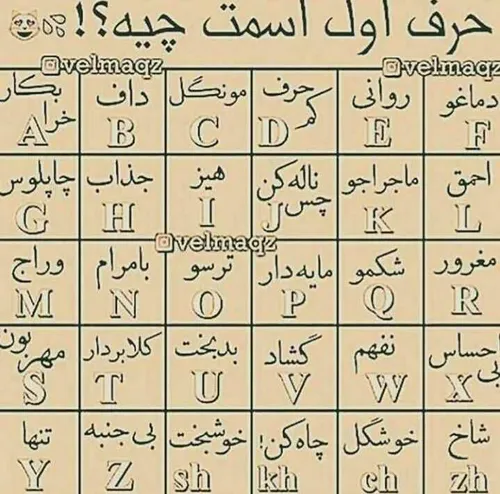 حرف اول اسمت چیه؟!
@velmaqz @velmaqz
بکار خرا داف مونگل حرف کم روانی دماغو
A B C D E F
چاپلوس جذاب هیز ناله کن چس ماجراجو احمق
G H I J K L
@velmaqz
وراج بامرام ترسو مایه دار شکمو مغرور
M N O P Q R
مهربون کلابردار بدبخت گشاد نفهم بی احساس
S T U V W X
تنها بی جنبه خوشبخت چاه کن! خوشگل شاخ
Y Z sh kh ch zh